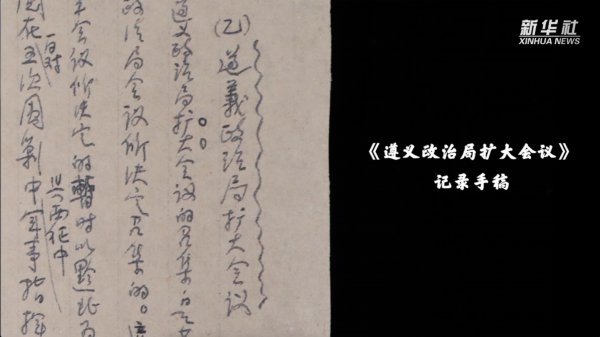 新华社
XINHUA NEWS
《遵义政治局扩大会议》
记录手稿
(乙)遵義政治局扩大会议
遵义政治局扩大会议的召集
政治局会议所决定召集的。
会议所决定的暂时以黔北为
与西征中
阅在五次围剿中军事指挥